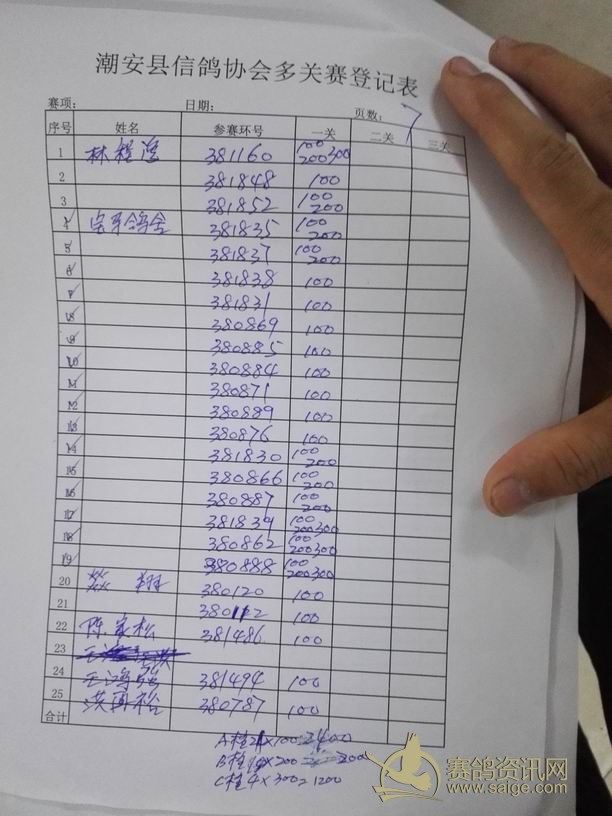 潮安县信鸽协会多关赛登记表
赛项： 日期： 页数： 7
序号 姓名 参赛环号 一关 二关 三关
1 381160 100 200 300
2 381848 100
3 381852 100 200
4 381835 100 200
5 381837 100 200
6 381838 100
7 381831 100
8 380869 100
9 380885 100
10 380884 100
11 380871 100
12 380889 100
13 380876 100
14 381830 100 200
15 380866 100 200
16 380887 100 200
17 381839 100 200 300
18 380862 100 200 300
19 380888 100 200 300
20 翔 380120 100
21 380112 100
22 陈家松 381486 100
23
24 381494 100
25 洪 380787 100
合计
A桂 ×100=
B桂 ×200
C桂 4×300=1200
赛鸽资讯网
www.saige.com